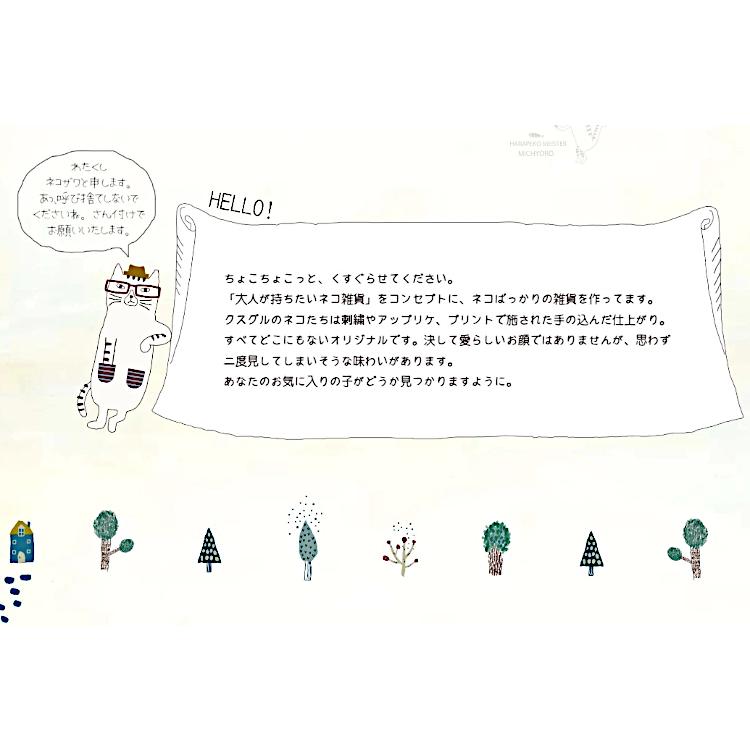 HARAPEKO MEISTER
MICHYORO
わたくし
ネコザワと申します。
あっ、呼び捨てしないで
くださいね。さん付けで
お願いいたします。
HELLO!
ちょこちょこっと、くすぐらせてください。
「大人が持ちたいネコ雑貨」をコンセプトに、ネコばっかりの雑貨を作ってます。
クスグルのネコたちは刺繍やアップリケ、プリントで施された手の込んだ仕上がり。
すべてどこにもないオリジナルです。決して愛らしいお顔ではありませんが、思わず
二度見してしまいそうな味わいがあります。
あなたのお気に入りの子がどうか見つかりますように。